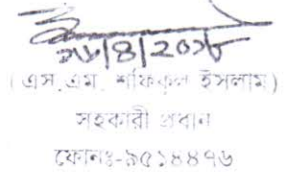 ১৬/৪/২০১৮
(এস.এম. শফিকুল ইসলাম)
সহকারী প্রধান
ফোনঃ-৯৫১৪৪৭৬